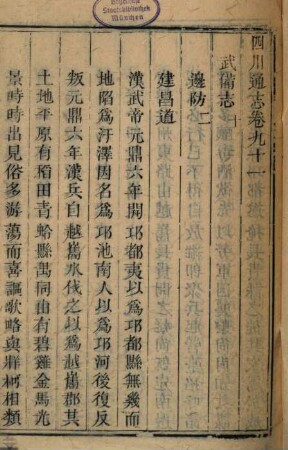 四川通志卷九十一
武備志十
邊防二
建昌道
漢武帝元鼎六年開邛都夷以爲邛都縣無幾而
地陷爲汙澤因名爲邛池南人以爲邛河後復反
叛元鼎六年漢兵自越巂水伐之以爲越巂郡其
土地平原有稻田青蛉縣禺同山有碧雞金馬光
景時時出見俗多游蕩而喜謳歌略與牂柯相類
Staatsbibliothek
München